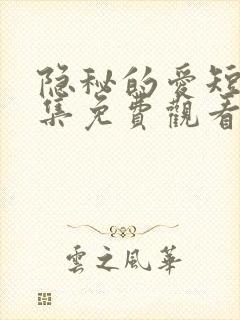 隐秘的爱短
集免費觀看
雲之風華